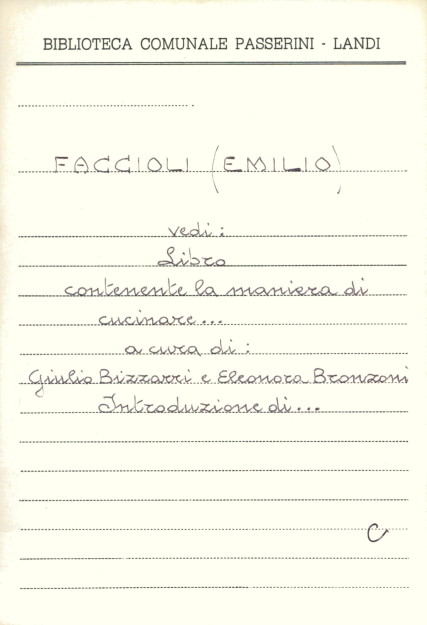 BIBLIOTECA COMUNALE PASSERINI - LANDI
FACCIOLI (EMILIO)
vedi:
Libro
contenente la maniera di
cucinare...
a cura di:
Giulio Bizzarri e Eleonora Bronzoni
Introduzione di...
C